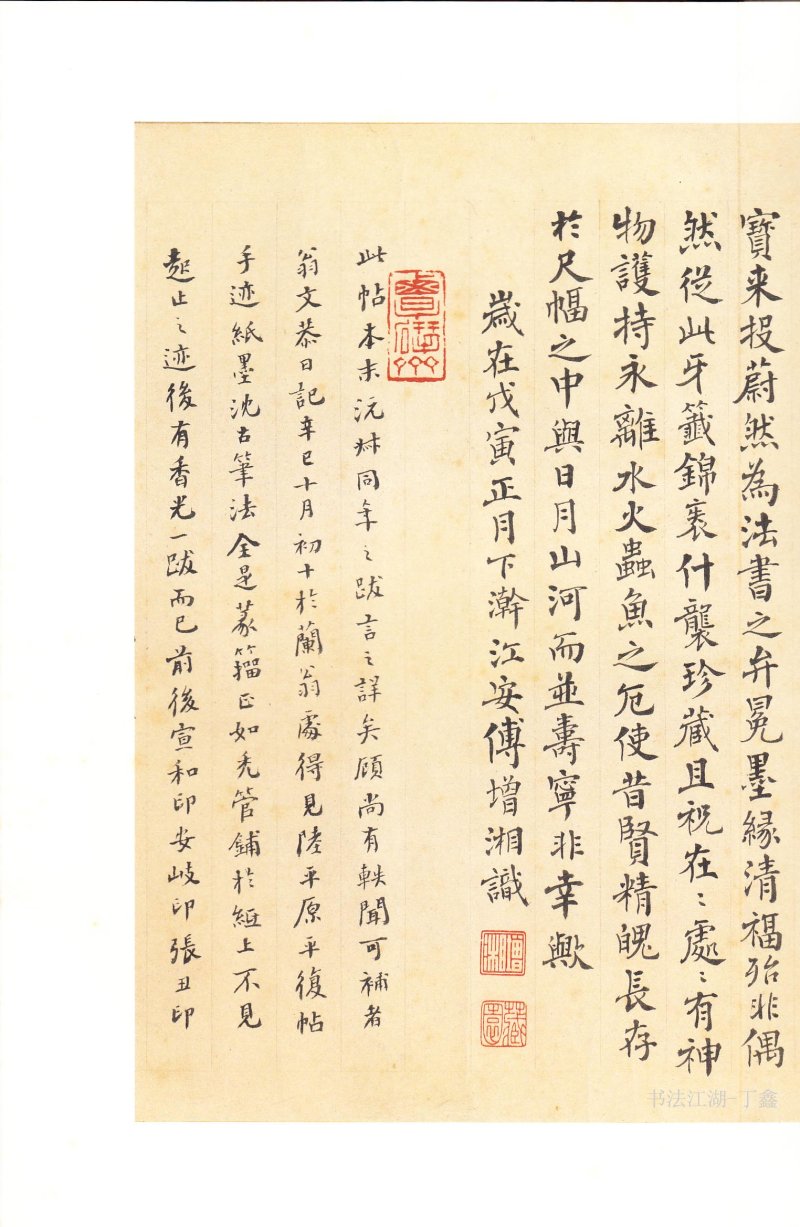 寶來投蔚然為法書之弁冕墨緣清福殆非偶
然從此牙籤錦裹什襲珍藏且祝在〻處〻有神
物護持永離水火蟲魚之厄使昔賢精魄長存
於尺幅之中與日月山河而並壽寧非幸歟
歲在戊寅正月下澣江安傅增湘識
增湘
藏園
此帖本末沅叔同年之跋言之詳矣顧尚有軼聞可補者
翁文恭日記辛巳十月初十於蘭翁處得見陸平原平復帖
手迹紙墨沈古筆法全是篆籀正如禿管鋪於紙上不見
起止之迹後有香光一跋而已前後宣和印安岐印張丑印
书法江湖-丁鑫